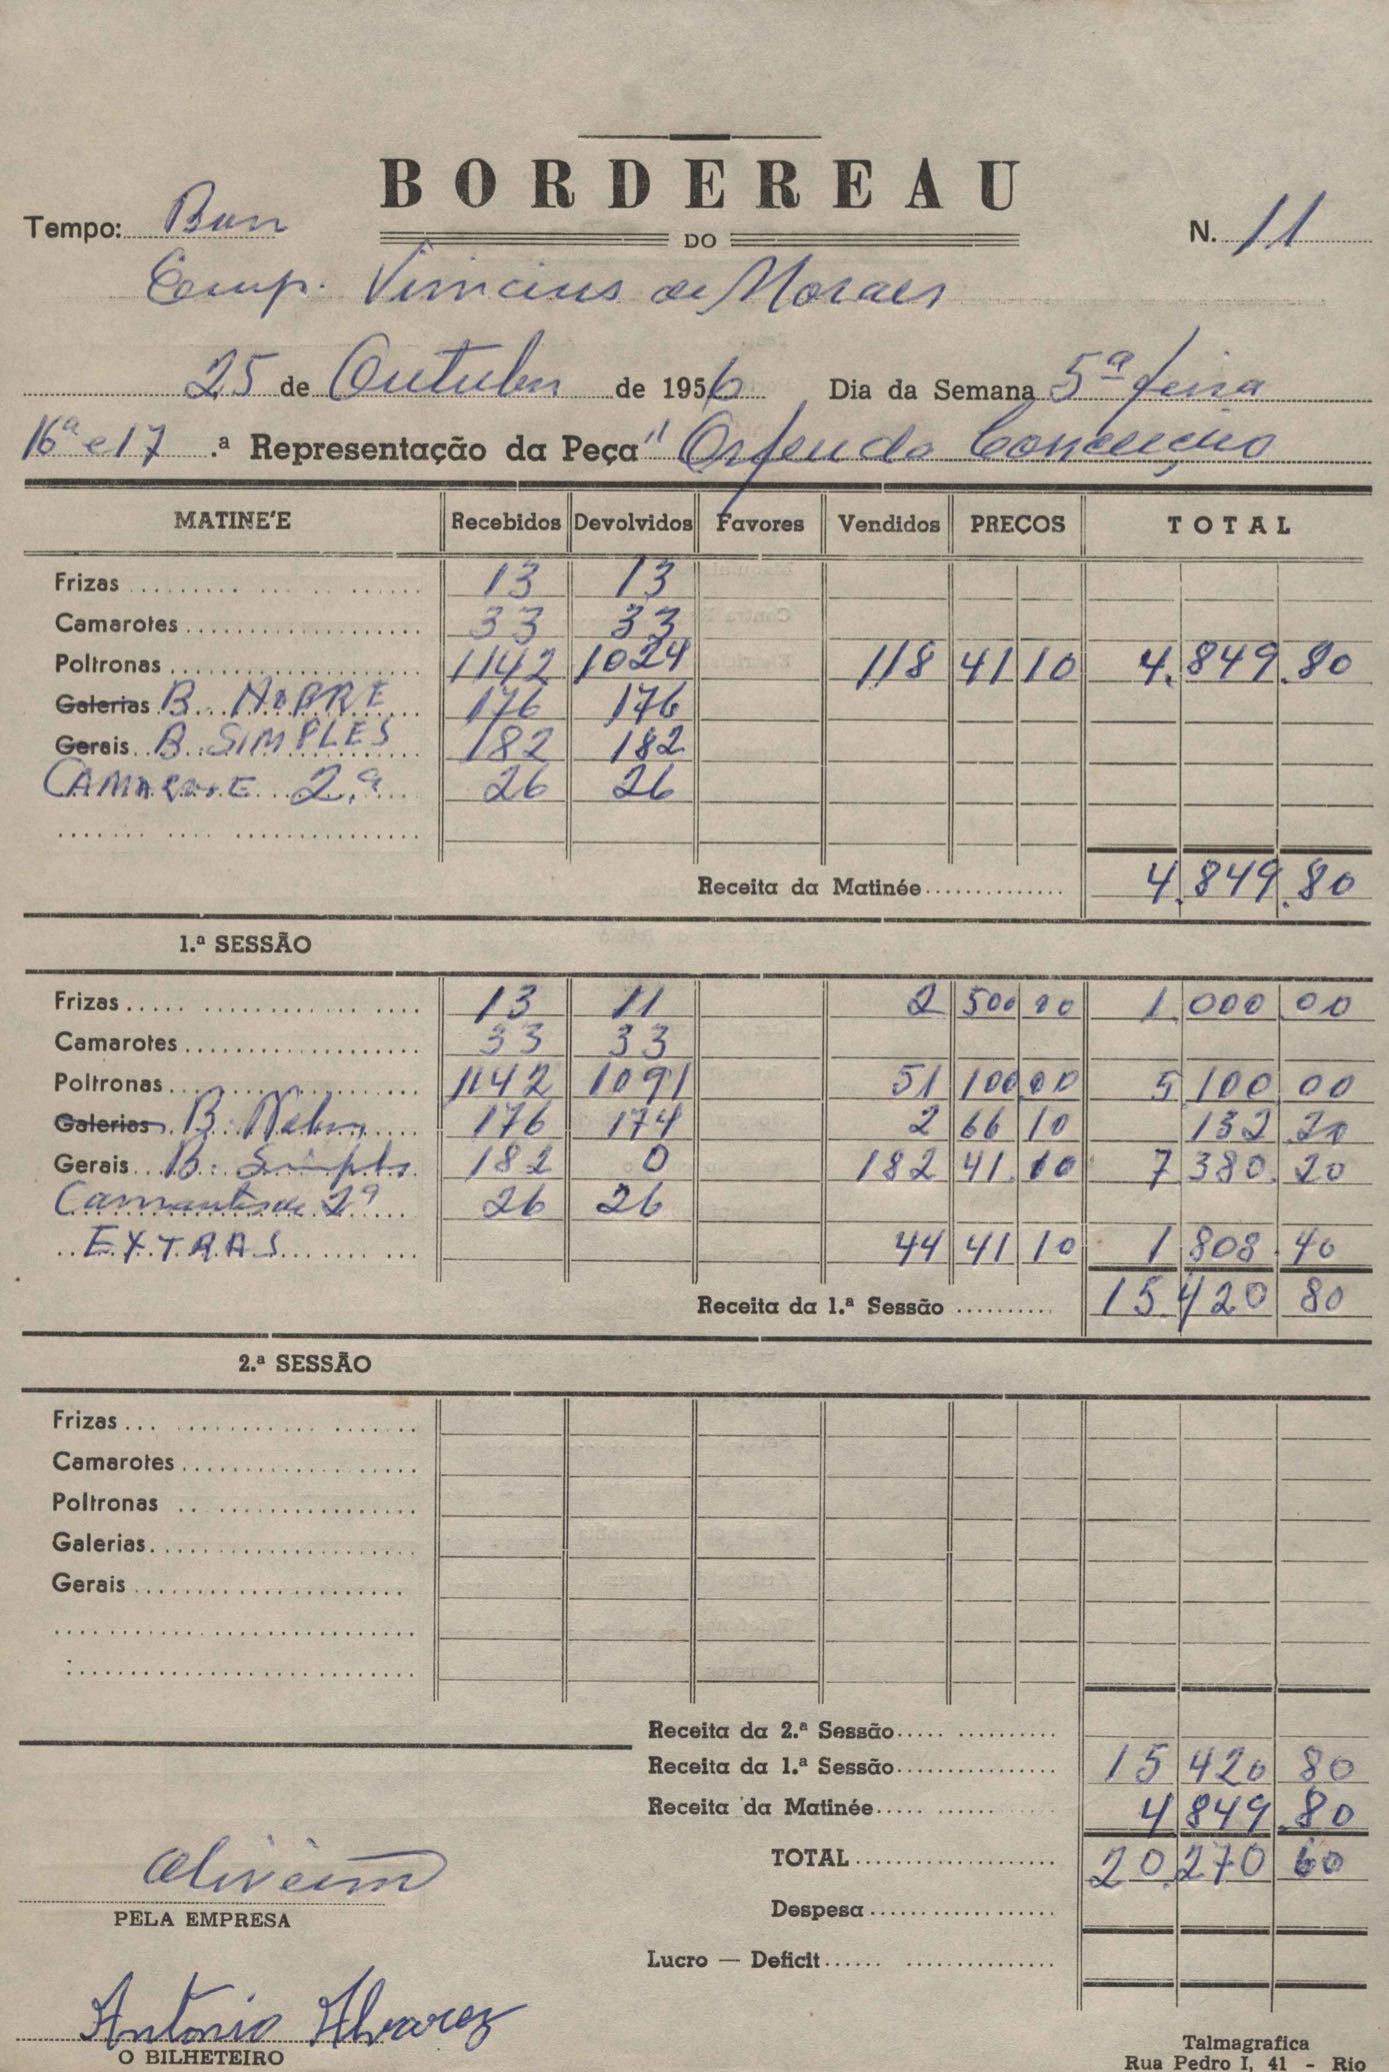 BORDEREAU
Tempo: Bom
DO
N. 11
Comp. Vinicius de Moraes
25 de Outubro de 1956 Dia da Semana 5ª feira
16ª e 17 .ª Representação da Peça "Orfeu da Conceição
MATINE'E Recebidos Devolvidos Favores Vendidos PREÇOS TOTAL
Frizas 13 13
Camarotes 33 33
Poltronas 1142 1024 118 41 10 4.849.80
Galerias B. NOBRE 176 176
Gerais B. SIMPLES 182 182
CAMAROTE 2.ª 26 26
Receita da Matinée 4.849.80
1.ª SESSÃO
Frizas 13 11 2 500 00 1.000 00
Camarotes 33 33
Poltronas 1142 1091 51 100 00 5 100 00
Galerias B. Nobre 176 174 2 66 10 132 20
Gerais B. Simples 182 0 182 41.10 7.380.20
Camarotes de 2ª 26 26
EXTRAS 44 41 10 1 808.40
Receita da 1.ª Sessão 15.420 80
2.ª SESSÃO
Frizas
Camarotes
Poltronas
Galerias
Gerais
Receita da 2.ª Sessão
Receita da 1.ª Sessão 15 420 80
Receita da Matinée 4 849.80
TOTAL 20.270 60
Oliveira
PELA EMPRESA
Despesa
Lucro — Deficit
Antonio Alvarez
O BILHETEIRO
Talmagrafica
Rua Pedro I, 41 - Rio